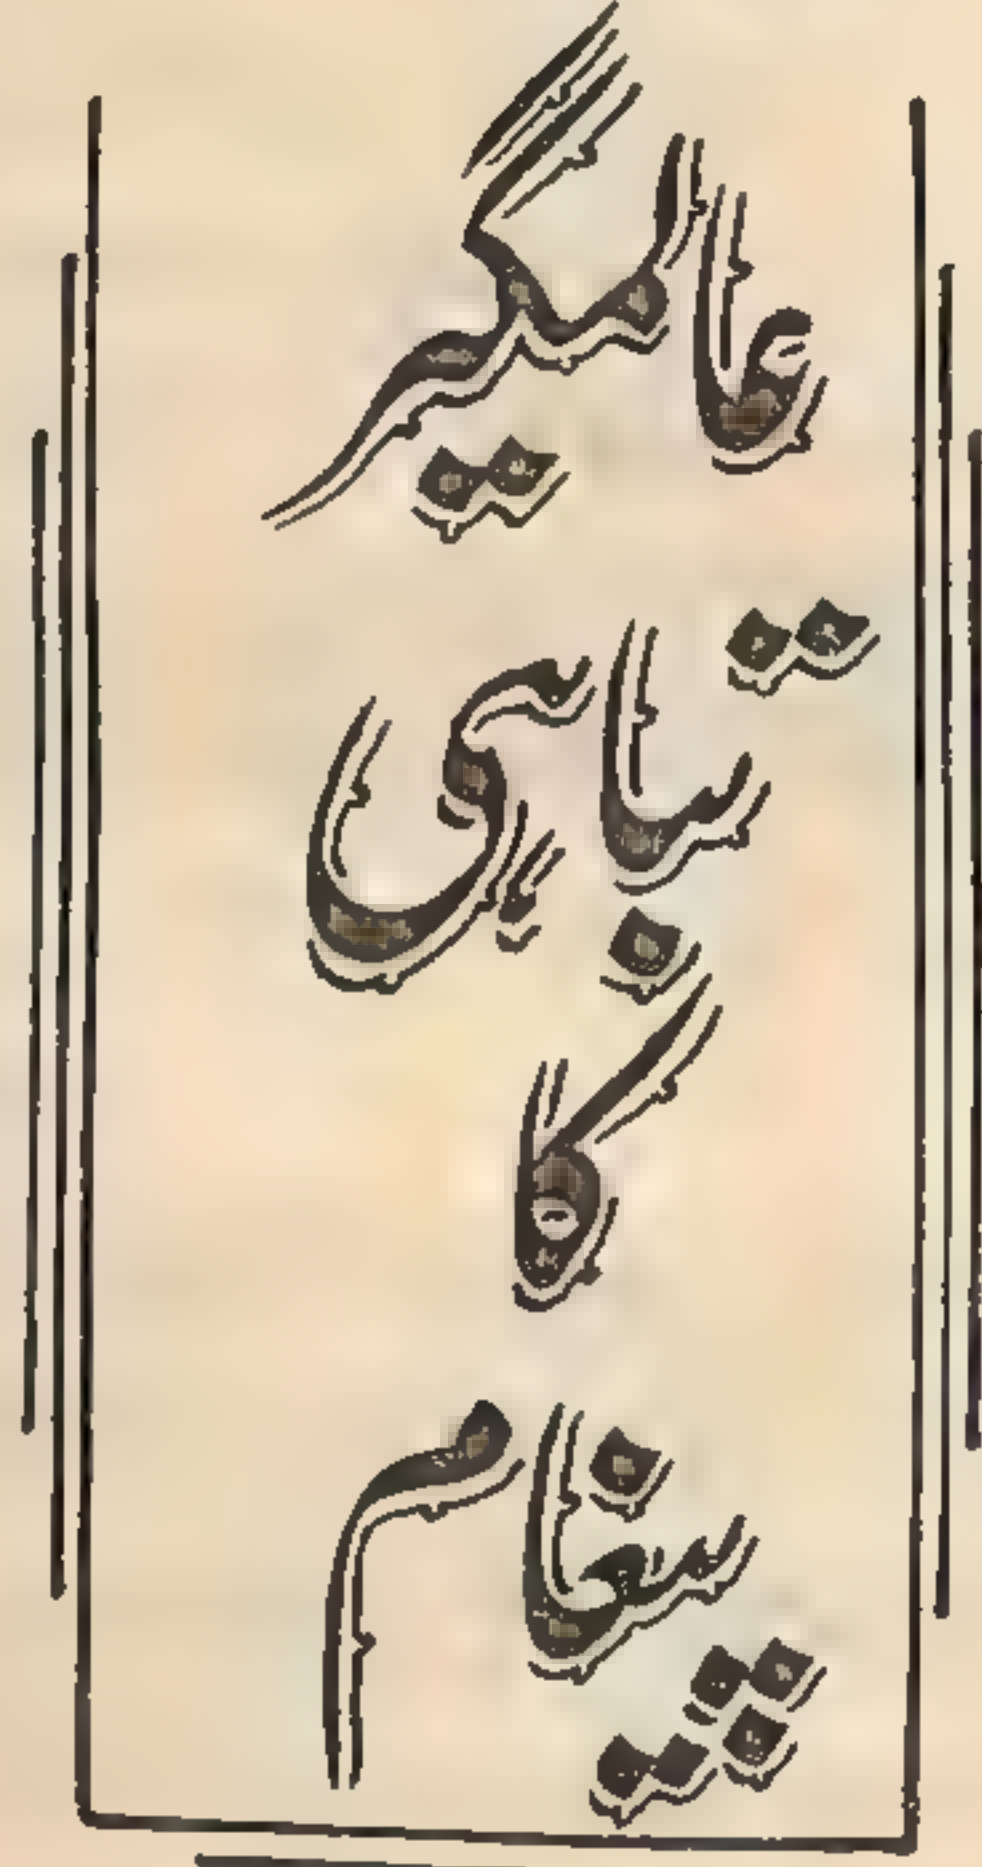 عالمگیر
تباہی
کا
پیغام